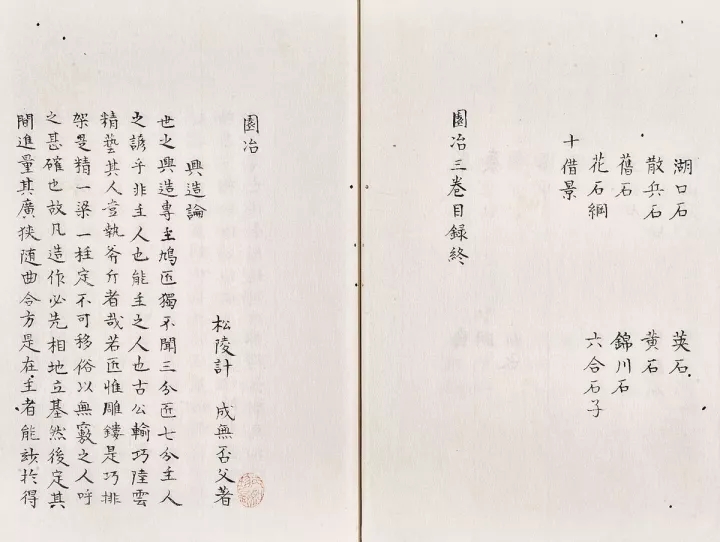 湖口石　英石
散兵石　黄石
舊石　錦川石
花石綱　六合石子
十借景
園冶三巻目録終
園冶
興造論
松陵計　成無否父著
世之興造專主鳩匠獨不聞三分匠七分主人
之諺乎非主人也能主之人也古公輸巧陸雲
精藝其人豈執斧斤者哉若匠惟雕鏤是巧排
架是精一梁一柱定不可移俗以無竅之人呼
之甚確也故凡造作必先相地立基然後定其
間進量其廣狹随曲合方是在主者能玅於得